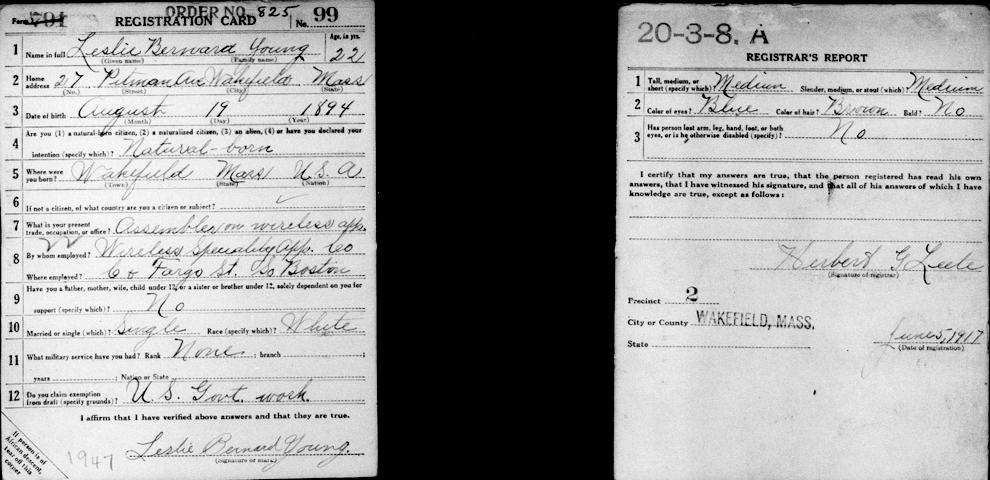 Form 701 REGISTRATION CARD ORDER NO. 825 No. 99
1 Name in full Leslie Bernard Young Age, in yrs. 22
(Given name) (Family name)
2 Home address 27 Pitman Ave Wakefield Mass
(No.) (Street) (City) (State)
3 Date of birth August 19 1894
(Month) (Day) (Year)
4 Are you (1) a natural-born citizen, (2) a naturalized citizen, (3) an alien, (4) or have you declared your
intention (specify which)? Natural-born
5 Where were you born? Wakefield Mass U.S.A
(Town) (State) (Nation)
6 If not a citizen, of what country are you a citizen or subject?
7 What is your present trade, occupation, or office? Assembler on wireless app.
8 By whom employed? Wireless Speciality App. Co
Where employed? C & Fargo St. So Boston
9 Have you a father, mother, wife, child under 12, or a sister or brother under 12, solely dependent on you for
support (specify which)? No
10 Married or single (which)? Single Race (specify which)? White
11 What military service have you had? Rank None ; branch ;
years ; Nation or State
12 Do you claim exemption from draft (specify grounds)? U.S. Govt. work.
I affirm that I have verified above answers and that they are true.
1947 Leslie Bernard Young.
(Signature or mark)
If person is of African descent, tear off this corner
20-3-8. A
REGISTRAR'S REPORT
1 Tall, medium, or short (specify which)? Medium Slender, medium, or stout (which)? Medium
2 Color of eyes? Blue Color of hair? Brown Bald? No
3 Has person lost arm, leg, hand, foot, or both
eyes, or is he otherwise disabled (specify)? No
I certify that my answers are true, that the person registered has read his own
answers, that I have witnessed his signature, and that all of his answers of which I have
knowledge are true, except as follows:
Herbert G Leele
(Signature of registrar)
Precinct 2
City or County WAKEFIELD, MASS.
State
June 5, 1917
(Date of registration)